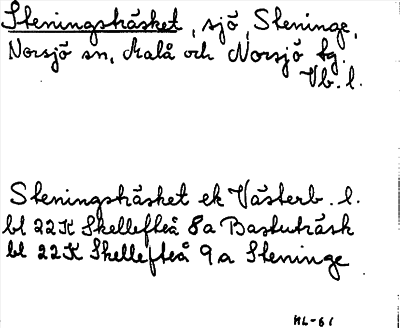 Steningsträsket, sjö, Steninge,
Norsjö sn, Malå och Norsjö tg.
Vb. l.
Steningsträsket ek Västerb. l.
bl 22K Skellefteå 8a Bastuträsk
bl 22K Skellefteå 9a Steninge
ML-61